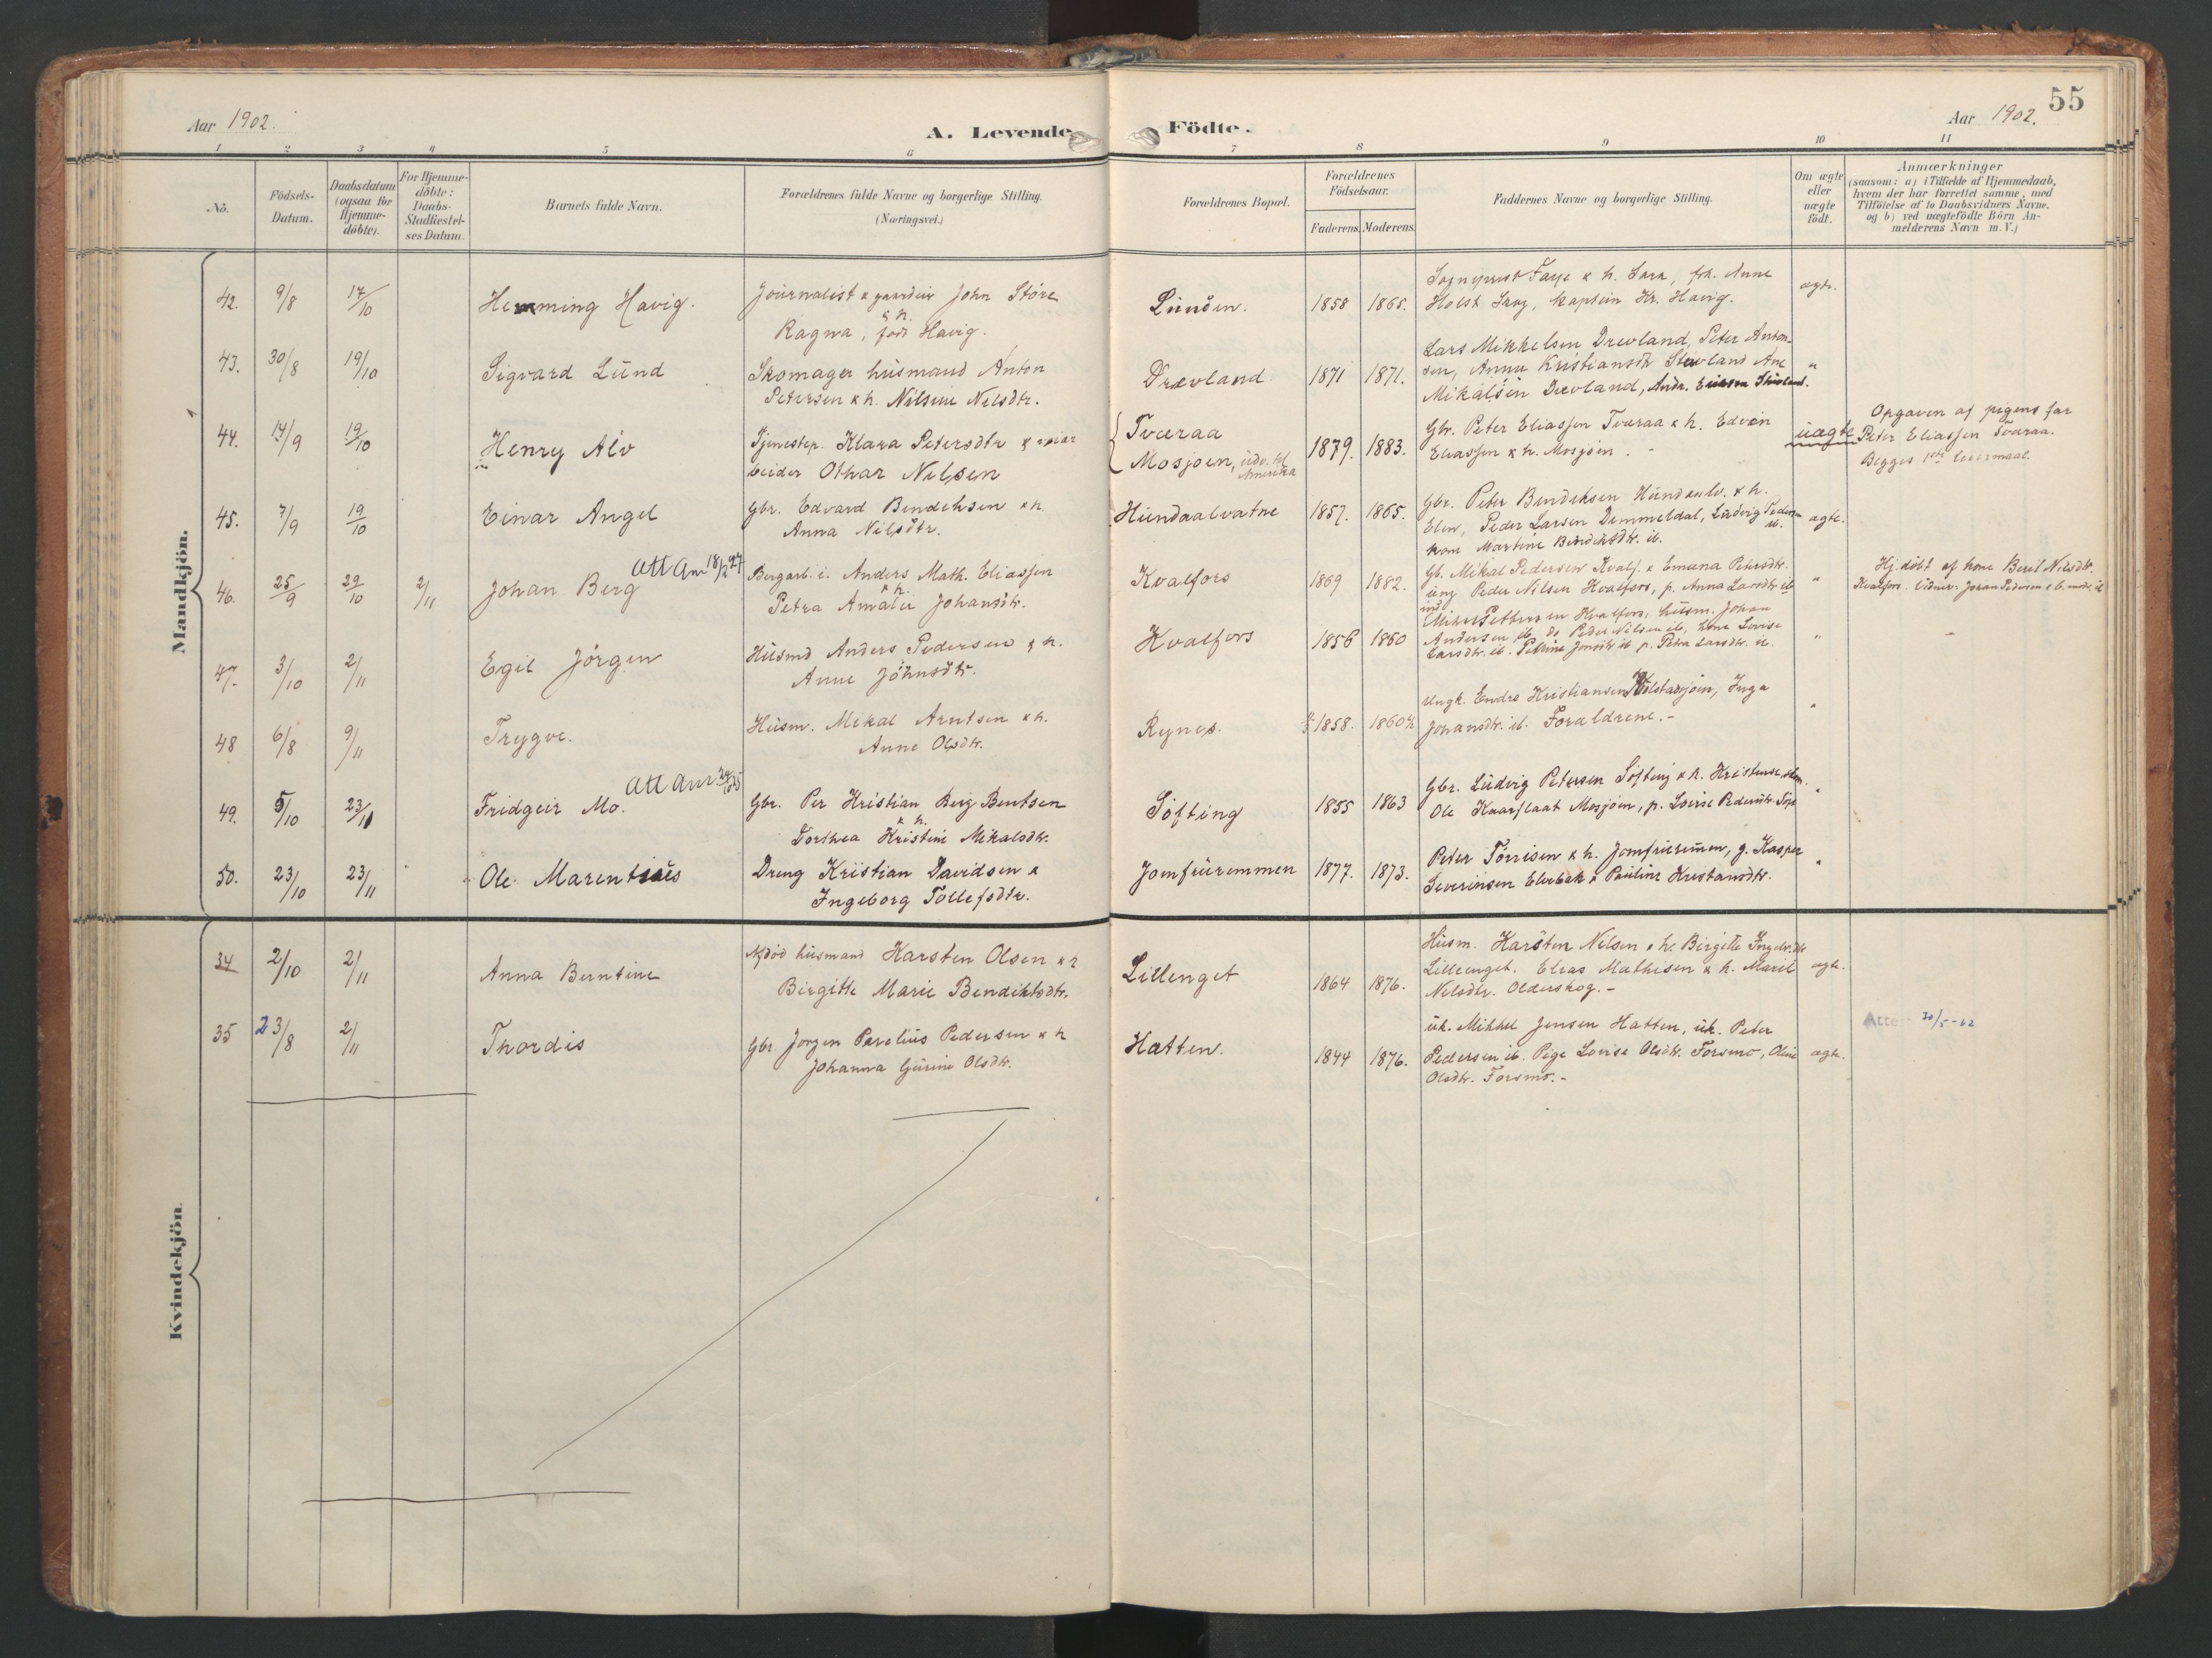 Aar 1902.
A. Levende
Födte.
Aar 1902.
55
1 2 3 4 5 6 7 8 9 10 11
No.
Födsels-
Datum.
Daabsdatum
(ogsaa for
Hjemme-
döbte).
For Hjemme-
döbte:
Daabs-
Stadfæstel-
ses Datum.
Barnets fulde Navn.
Forældrenes fulde Navne og borgerlige Stilling.
(Næringsvei.)
Forældrenes Bopæl.
Forældrenes
Födselsaar.
Faderens. Moderens.
Faddernes Navne og borgerlige Stilling.
Om ægte
eller
uægte
födt.
Anmærkninger
(saasom: a) i Tilfælde af Hjemmedaab,
hvem der har forrettet samme, med
Tilföielse af to Daabsvidners Navne,
og b) ved uægtefödte Börn An-
melderens Navn m. V.)
Mandkjön.
42. 9/8 17/10 Hemming Havig.
Journalist & gaardeier John Støre
& h.
Ragna, født Havig.
Lunden. 1858 1865.
Sogneprest Faye & h. Sara, frk. Anne
Holst, kaptein Kr. Havig.
ægte.
43. 30/8 19/10 Sigvard Lund
Skomager husmand Anton
Petersen & h. Nilsine Nelsdtr.
Drevland 1871 1871.
Lars Mikkelsen Drevland, Peter Anton-
sen, Anna Kristiansdtr. Ane
Mikalsen Drevland, Andr.
"
44. 14/9 19/10 Henry Alv
Tjenestep. Klara Petersdtr &
beider Othar Nilsen
Tveraa
Mosjøen, udv. til
Amerika
1879. 1883.
Gbr. Peter Eliassen Tveraa & h. Edvin
Eliassen & h. Mosjøen.
uægte
Opgaven af pigens far
Peter Eliassen Tveraa.
Begges 1ste leiermaal.
45. 7/9 19/10 Einar Angel
Gbr. Edvard Bendiksen & h.
Anna Nilsdtr.
Hundaalvatne 1857. 1865.
Gbr. Peter Bendiksen & h.
Elen, Peder Larsen Demmeldal, Ludvig Pedersen
ib.
kone Martine Bendiktsdtr. ib.
ægte.
46. 25/9 29/10 2/11 Johan Berg
Att Am 18/2 27
Bergarb. i. Anders Math. Eliassen
& h.
Petra Amalie Johansdtr.
Kvalfors 1869 1882.
Gb. Mikal Pedersen Kvalf. & Emma Petersdtr.
ung Peder Nilsen Kvalfors, p. Anna Larsdtr ib
"
Hj.døbt af kone Berit Nilsdtr.
Kvalfors. Vidner: Johan Pedersen
47. 3/10 2/11 Egil Jörgen
Husmd Anders Pedersen & h.
Anne Johnsdtr.
Kvalfors 1856 1860
Pettersen Kvalfors, husm. Johan
Andersen ib, do Peder Nilsen ib, kone Lovise
Larsdtr. ib. p. Petra Larsdtr. ib.
"
48 6/8 9/11 Trygve.
Husm. Mikal Arntsen & h.
Anne Olsdtr.
Rynes. 1858. 1860
Ungk. Endre Kristiansen, Inga
Johansdtr. ib. Forældrene.-
"
49. 5/10 23/11 Fridgeir Mo.
Att Am
Gbr. Per Kristian Berg Bentsen
& h.
Dorthea Kristine Mikalsdtr.
Søfting 1855 1863
Gbr. Ludvig Petersen Søfting & h. Kristense
Ole Kvarflaat Mosjøen, p. Lovise Pedersdtr.
"
50. 23/10 23/11 Ole Marentius
Dreng Kristian Davidsen &
Ingeborg Tollefsdtr.
Jomfruremmen 1877. 1873.
Peter Törrisen & h. Jomfruremmen, g. Kasper
Severinsen & Pauline Kristansdtr.
"
Kvindekjön.
34 2/10 2/11 Anna Berntine
husmand Karsten Olsen &
Birgitte Marie Bendiktsdtr.
Lillenget 1864 1876.
Husm. Karsten Nilsen & h. Birgitte
Lilleenget. Elias Mathisen & h. Marit
Nelsdtr. Olderskog.-
ægte.
35 23/8 2/11 Thordis
Gbr. Jørgen Parelius Pedersen & h
Johanna Gurine Olsdtr.
Hatten. 1844 1876.
uk. Mikkel Jensen Hatten, uk. Peter
Pedersen ib. Pige Lovise Olsdtr. Forsmo, Oline
Olsdtr. Forsmo.-
ægte.
Attest 30/5-62